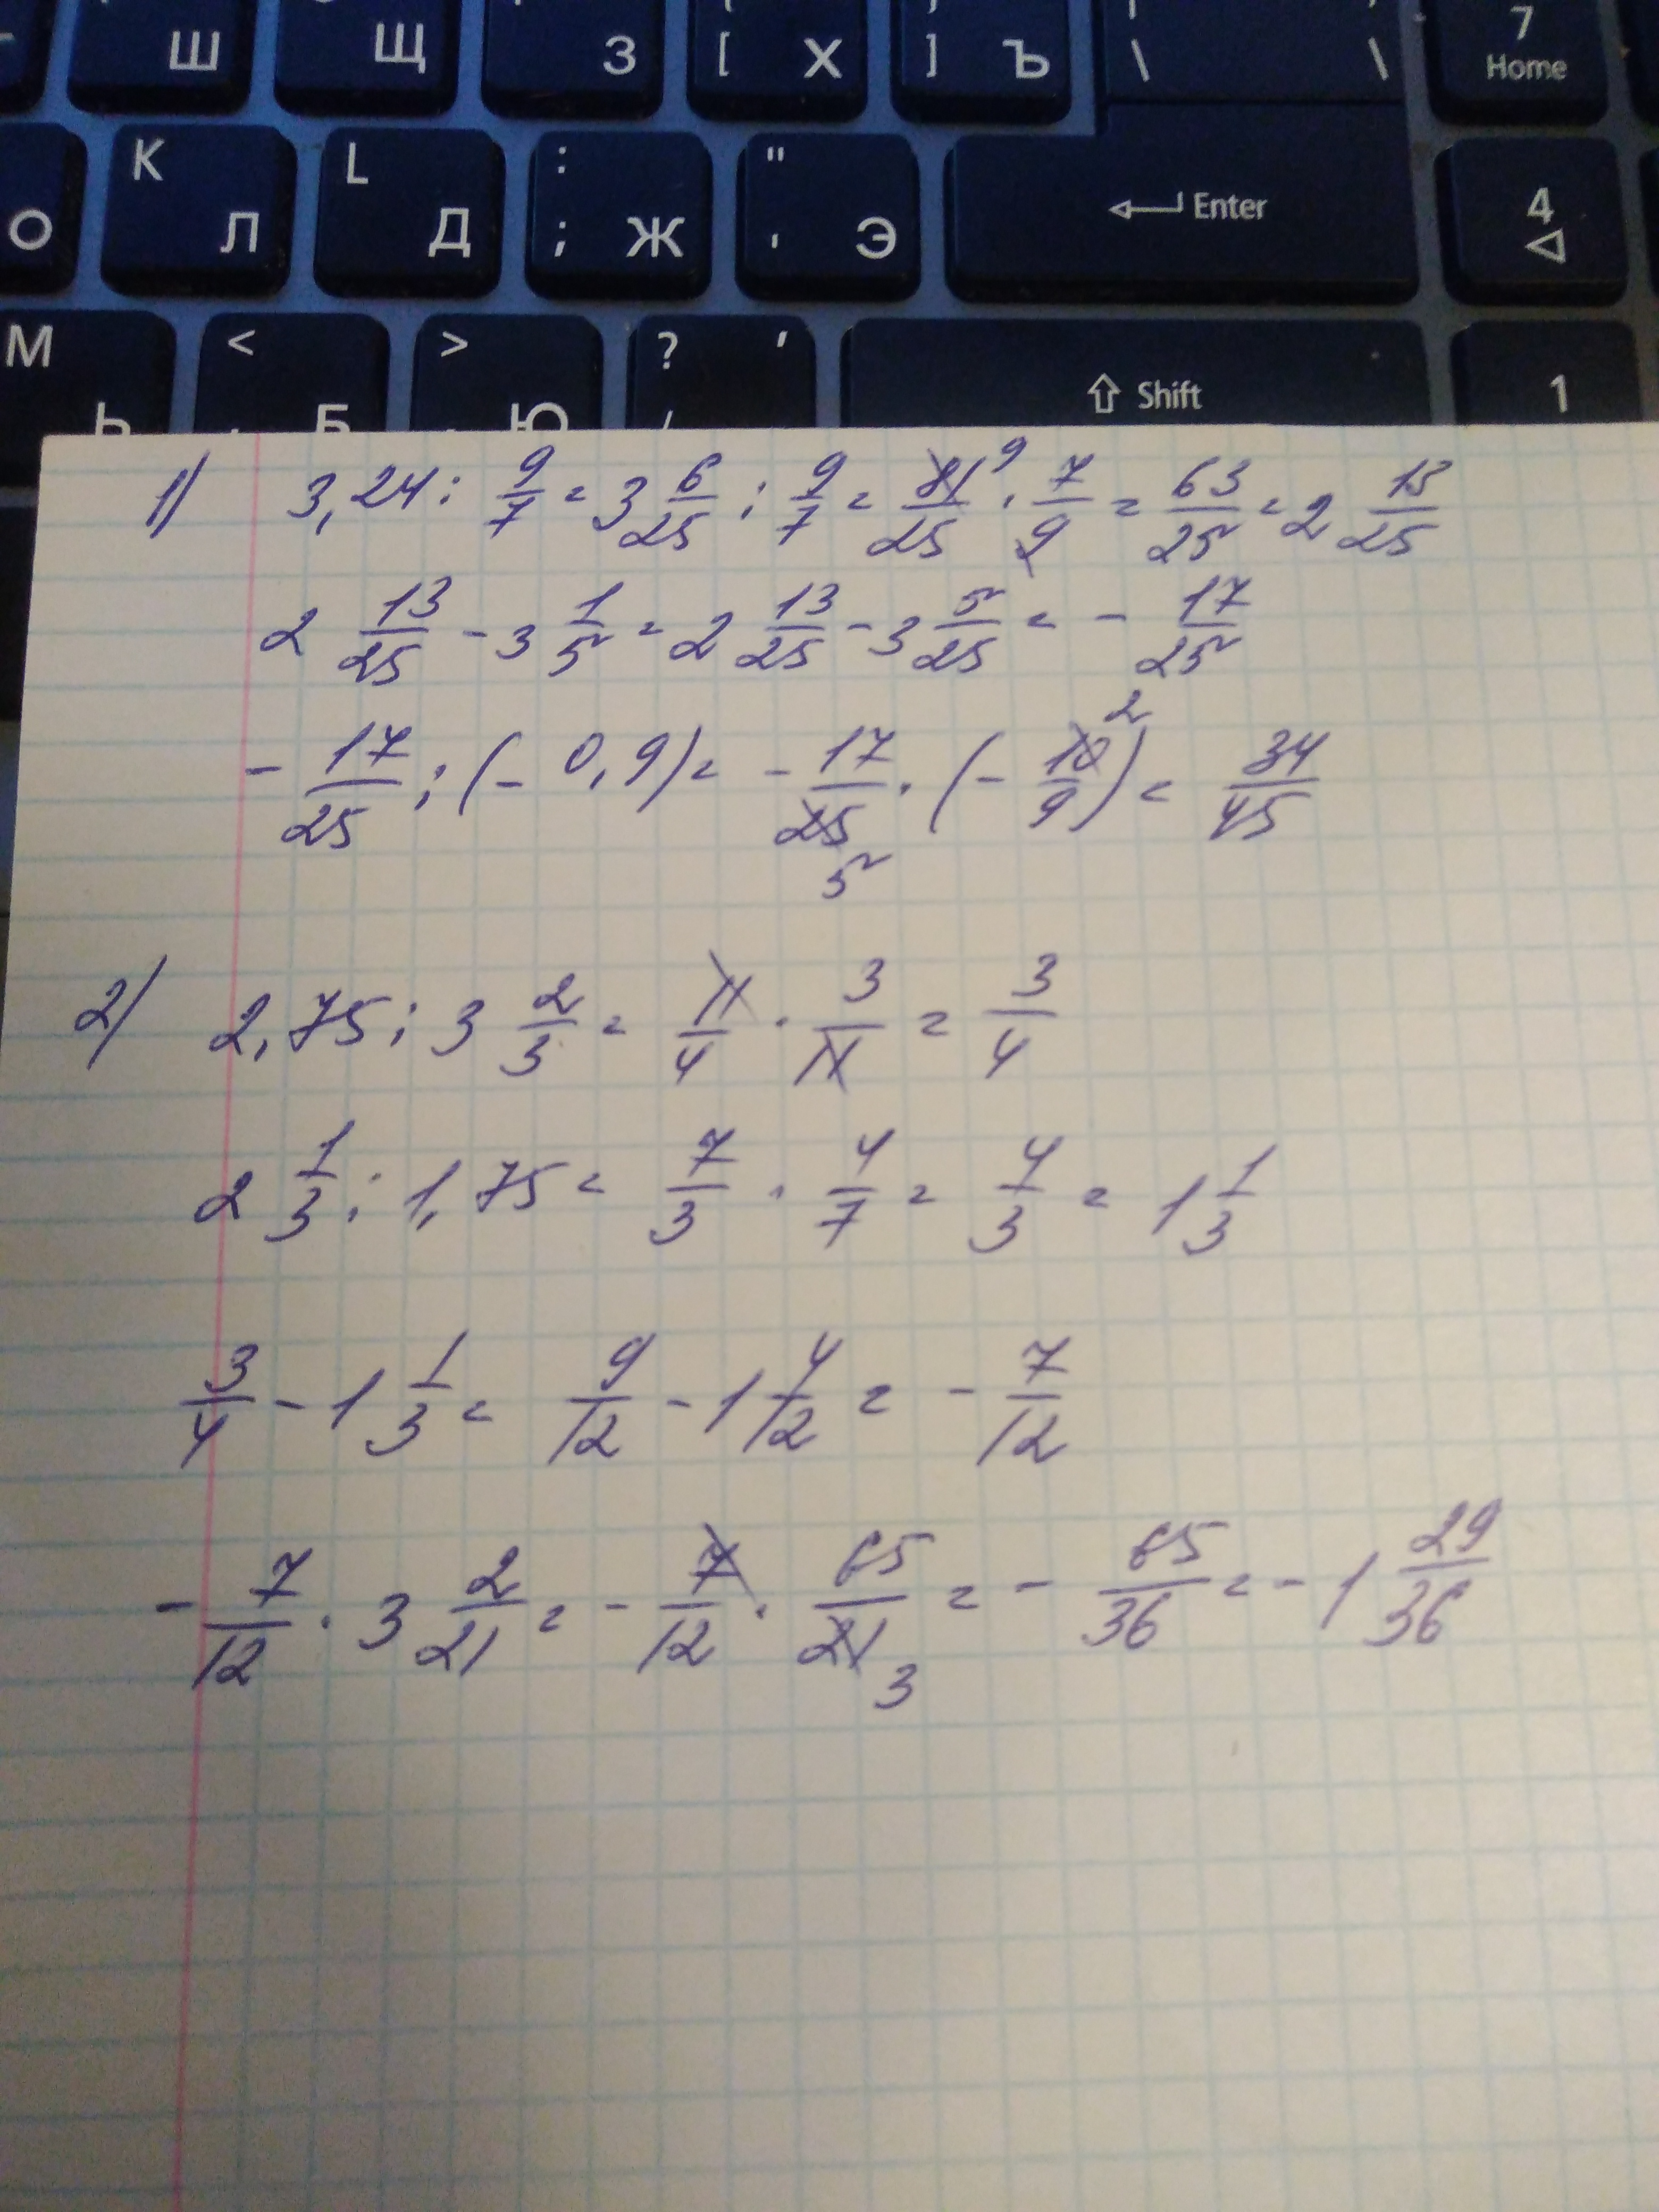 Ш Щ З [ Х ] Ъ \ \ 7 Home
О K Л L Д : ; Ж " ' Э Enter 4
М Ь < Б > Ю ? / ' Shift 1
1) 3,24 : 9/7 = 3 6/25 : 9/7 = 81/25 9 · 7/9 = 63/25 = 2 13/25
2 13/25 - 3 1/5 = 2 13/25 - 3 5/25 = - 17/25
- 17/25 : (- 0,9) = - 17/25 5 · (- 10/9) 2 = 34/45
2) 2,75 : 3 2/3 = 11/4 · 3/11 = 3/4
2 1/3 : 1,75 = 7/3 · 4/7 = 4/3 = 1 1/3
3/4 - 1 1/3 = 9/12 - 1 4/12 = - 7/12
- 7/12 · 3 2/21 = - 7/12 · 65/21 3 = - 65/36 = - 1 29/36